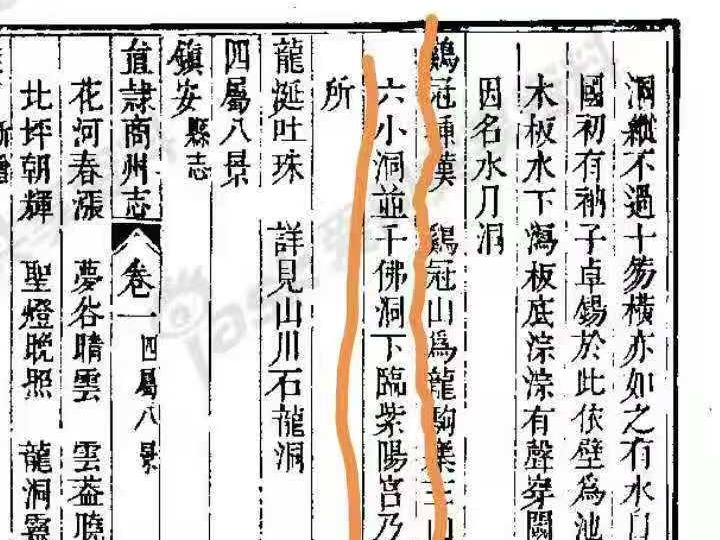 洞縱不過十笏橫亦如之有水自
國初有衲子卓錫於此依壁為池
木板水下瀉板底淙淙有聲穿閣
因名水月洞
鷄冠插漢 鷄冠山為龍駒寨主山
六小洞並千佛洞下臨紫陽宮乃
所
龍涎吐珠 詳見山川石龍洞
四屬八景
鎮安縣志
直隸商州志 卷一 四屬八景
花河春漲 夢谷晴雲 雲葢曉
北坪朝輝 聖燈晚照 龍洞靈